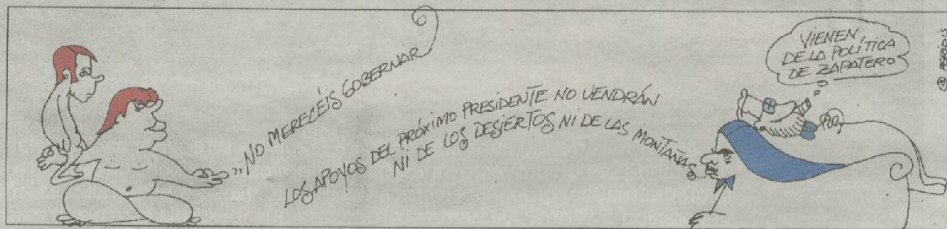 „NO MERECÉIS GOBERNAR
LOS APOYOS DEL PRÓXIMO PRESIDENTE NO VENDRÁN
NI DE LOS DESIERTOS NI DE LAS MONTAÑAS...
VIENEN
DE LA POLÍTICA
DE ZAPATERO